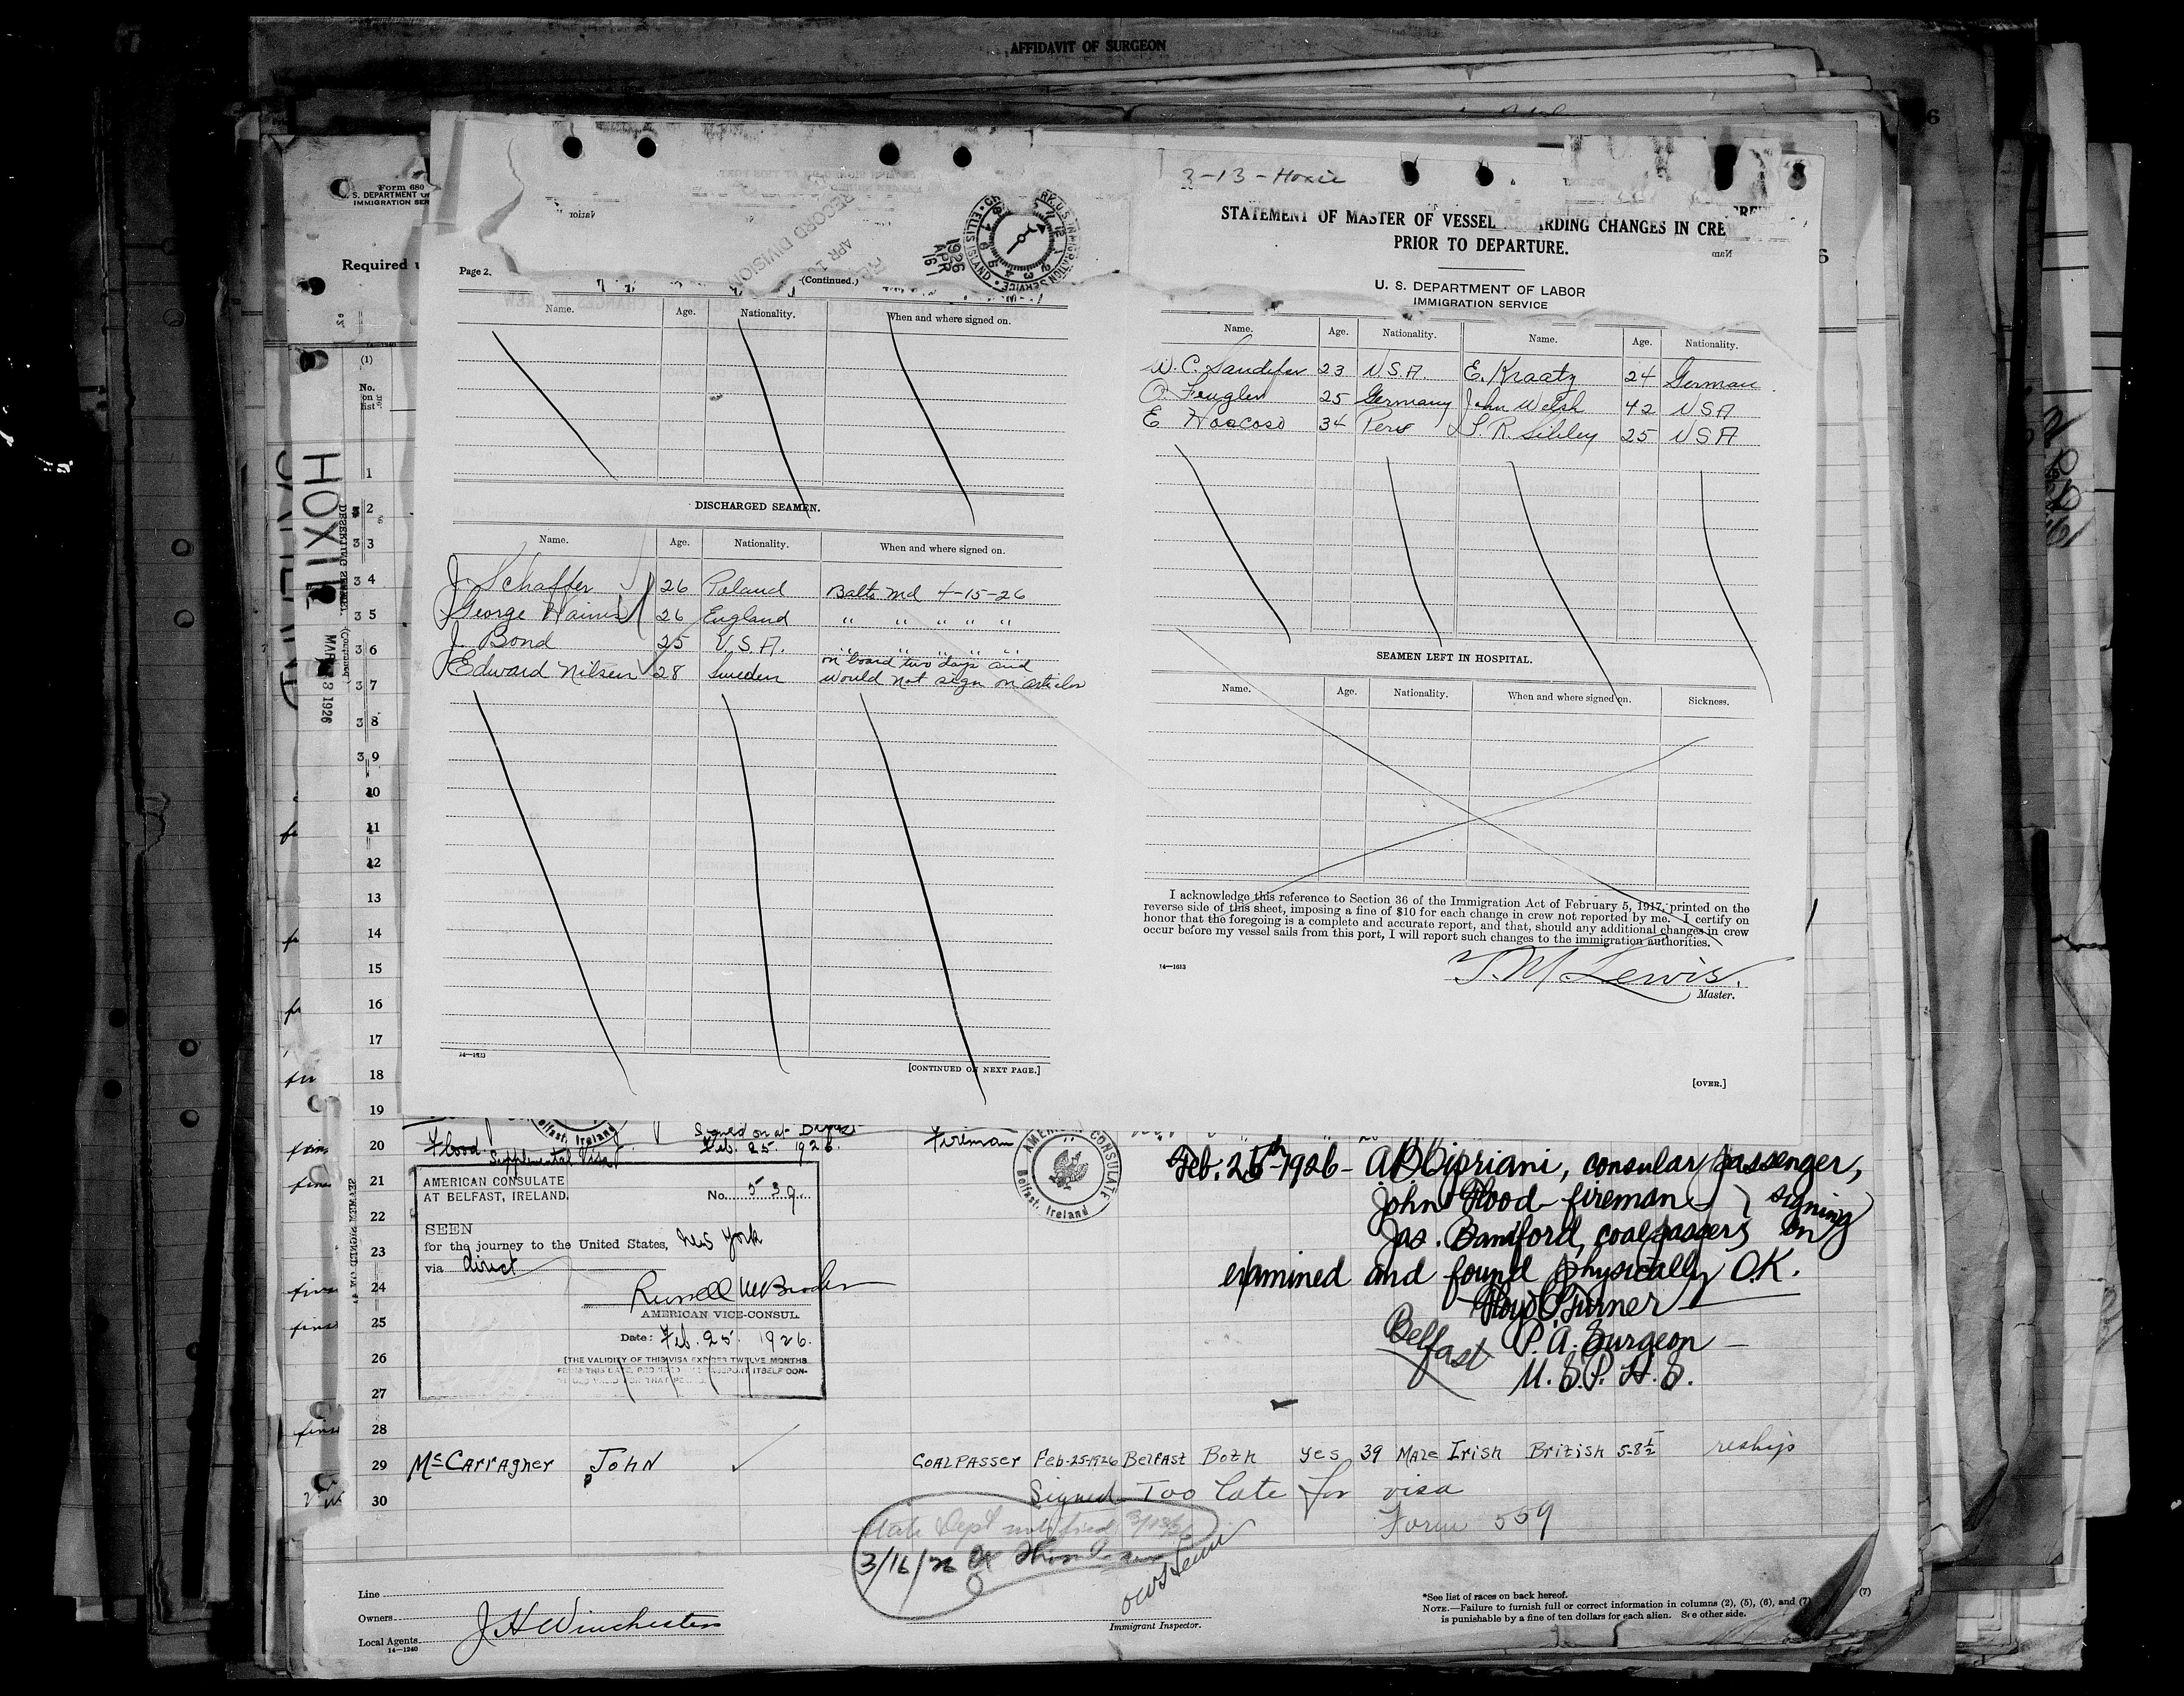 AFFIDAVIT OF SURGEON
Form 680
S. DEPARTMENT OF
IMMIGRATION SER
Required u
Page 2.
(Continued.)
RECORD DIVISION
APR
1926
APR
16
ELLIS ISLAND
IMMIGRATION SERVICE
Name. Age. Nationality. When and where signed on.
DISCHARGED SEAMEN.
Name. Age. Nationality. When and where signed on.
J. Schaffer 26 Poland Balto Md 4-15-26
George Hains 26 England " " " " "
J. Bond 25 U.S.A. " " " " "
Edward Nilsen 28 Sweden on board two days and
would not sign on articles
14—1613
[CONTINUED ON NEXT PAGE.]
3-13-Hoxie
STATEMENT OF MASTER OF VESSEL ARDING CHANGES IN CRE
PRIOR TO DEPARTURE.
U. S. DEPARTMENT OF LABOR
IMMIGRATION SERVICE
Name. Age. Nationality. Name. Age. Nationality.
W. C. Sandifer 23 U.S.A. E. Kraatz 24 German
25 Germany John Welsh 42 USA
34 Peru R. Sibley 25 USA
SEAMEN LEFT IN HOSPITAL.
Name. Age. Nationality. When and where signed on. Sickness.
I acknowledge this reference to Section 36 of the Immigration Act of February 5, 1917, printed on the
reverse side of this sheet, imposing a fine of $10 for each change in crew not reported by me. I certify on
honor that the foregoing is a complete and accurate report, and that, should any additional changes in crew
occur before my vessel sails from this port, I will report such changes to the immigration authorities.
T. M. Lewis.
Master.
14—1613
[OVER.]
(1)
No.
on
list
HOXIE
MAR 1926
1
2
3
4
5
6
7
8
9
10
11
12
13
14
15
16
17
18
19
20
21
22
23
24
25
26
27
28
29
30
Flood Signed on at Belfast Fireman
Supplemental Visa Feb. 25. 1926.
AMERICAN CONSULATE
Belfast, Ireland
AMERICAN CONSULATE
AT BELFAST, IRELAND.
No. 539.
SEEN
for the journey to the United States, New York
via direct
AMERICAN VICE-CONSUL
Date: Feb. 25. 1926.
[THE VALIDITY OF THIS VISA EXPIRES TWELVE MONTHS
Feb. 25th-1926- A.B. Cipriani, consular passenger,
John Flood fireman } signing
Jas. Bamford, coalpassers on
examined and found physically O.K.
Floyd C. Turner
Belfast P.A. Surgeon
U.S.P.H.S.
McCarragher John Coalpasser Feb-25-1926 Belfast Both yes 39 Male Irish British 5-8½ reship
Signed Too late for visa
Form 559
State Dept notified
3/16/26
Line
Owners
Local Agents J H Winchester
14—1240
Immigrant Inspector.
*See list of races on back hereof.
NOTE.—Failure to furnish full or correct information in columns (2), (5), (6), and (7)
is punishable by a fine of ten dollars for each alien. See other side.
(7)